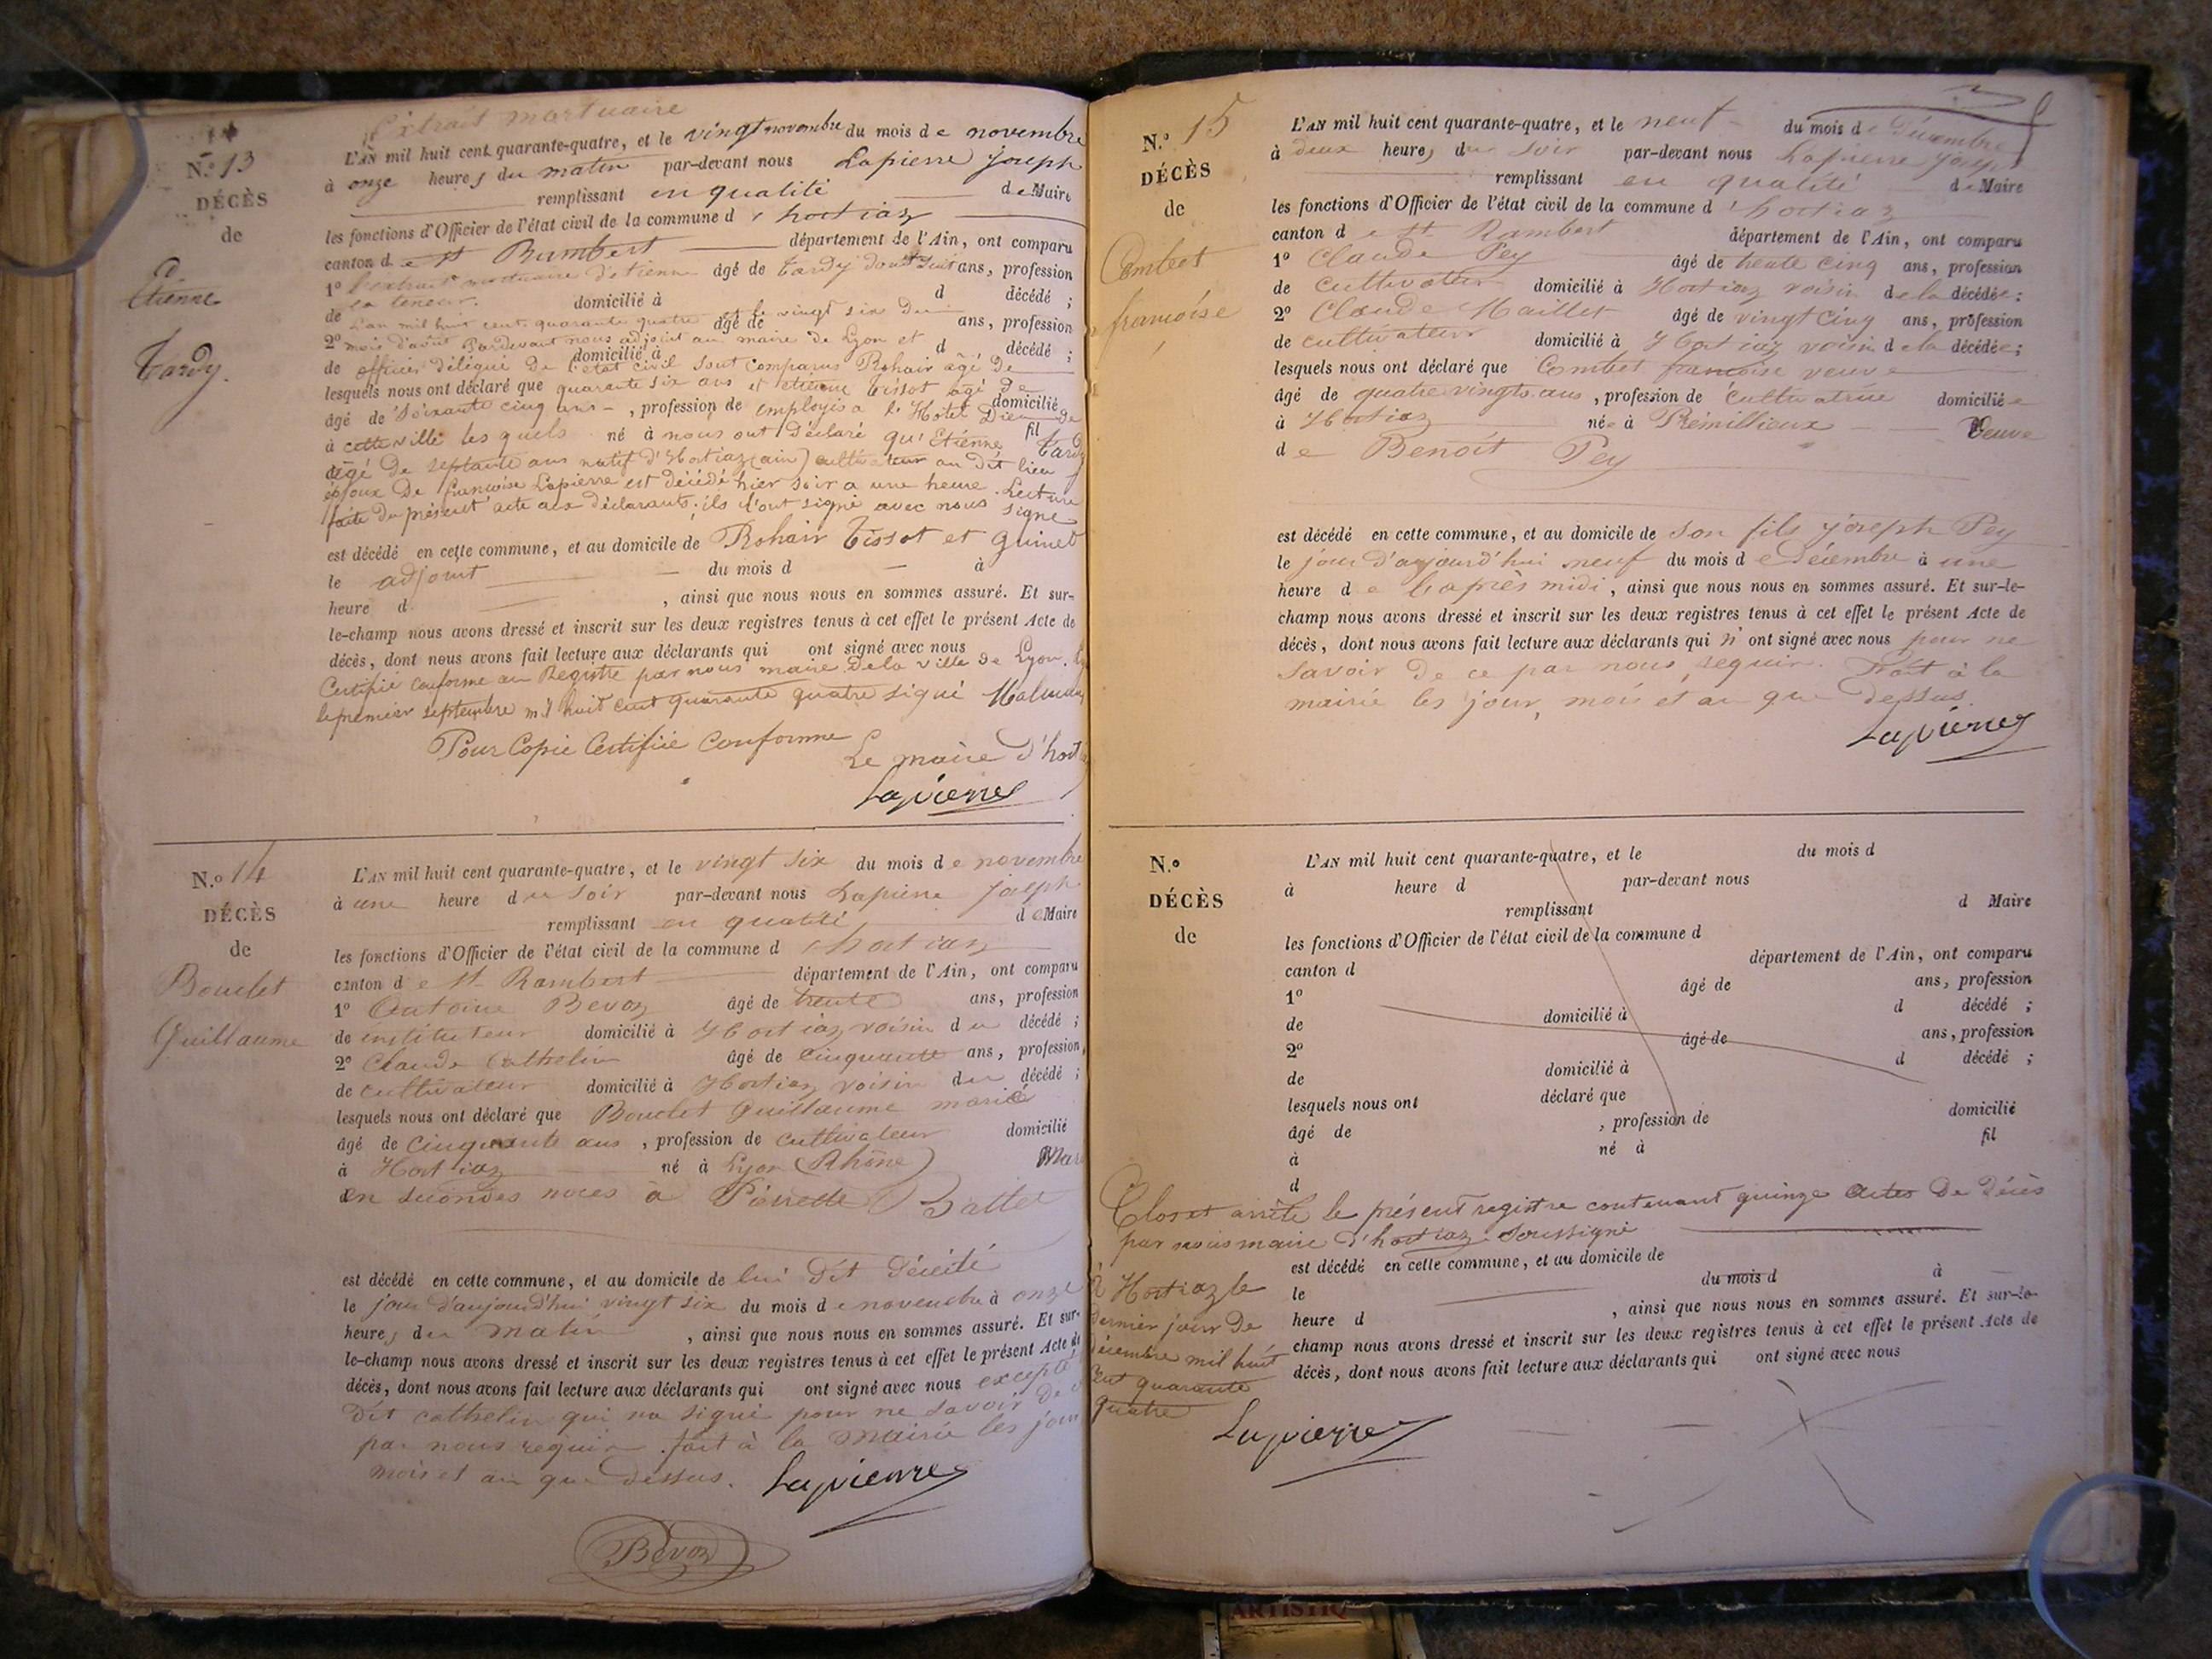 Extrait mortuaire
N.º 13
DÉCÈS
de
Etienne
Tardy.
L'AN mil huit cent quarante-quatre, et le vingt novembre du mois de novembre
à onze heures du matin par-devant nous Lapierre Joseph
remplissant en qualité de Maire
les fonctions d'Officier de l'état civil de la commune d'hortiaz
canton de St Rambert département de l'Ain, ont comparu
1º l'extrait mortuaire d'étienne âgé de Tardy dont suit ans, profession
de la teneur. domicilié à d décédé ;
L'an mil huit cent quarante quatre et le vingt six du
2º âgé de ans, profession
mois d'août Pardevant nous adjoint au maire de Lyon et
de domicilié à d décédé ;
officier délégué de l'état civil sont comparus Rohair âgé de
lesquels nous ont déclaré que quarante six ans et etienne Tissot âgé de
âgé de soixante cinq ans , profession de employés a l'Hôtel Dieu de domicilié
à cette ville les quels né à nous ont déclaré qu'Etienne fil Tardy
âgé de septante ans natif d'Hortiaz (ain) cultivateur au dit lieu
époux de françoise Lapierre est décédé hier soir a une heure. Lecture
faite du présent acte aux déclarants, ils l'ont signé avec nous signé
est décédé en cette commune, et au domicile de Rohair Tissot et Guinet
le adjoint du mois d à
heure d , ainsi que nous nous en sommes assuré. Et sur-
le-champ nous avons dressé et inscrit sur les deux registres tenus à cet effet le présent Acte de
décès, dont nous avons fait lecture aux déclarants qui ont signé avec nous
Certifié conforme au Registre par nous maire de la ville de Lyon.
le premier septembre mil huit cent quarante quatre signé
Pour Copie Certifiée Conforme
Le maire d'hort
Lapierre
N.º 14
DÉCÈS
de
Bouclet
Guillaume
L'AN mil huit cent quarante-quatre, et le vingt six du mois de novembre
à une heure du soir par-devant nous Lapierre joseph
remplissant en qualité de Maire
les fonctions d'Officier de l'état civil de la commune d'hortiaz
canton de St Rambert département de l'Ain, ont comparu
1º Antoine Bevoz âgé de trente ans, profession
de instituteur domicilié à Hortiaz voisin du décédé ;
2º Claude Cathelin âgé de cinquante ans, profession
de cultivateur domicilié à Hortiaz voisin du décédé ;
lesquels nous ont déclaré que Bouclet Guillaume marié
âgé de cinquante ans , profession de cultivateur domicilié
à Hortiaz né à Lyon (Rhône) Mar
en secondes noces à Pierrette Ballet
est décédé en cette commune, et au domicile de lui dit décédé
le jour d'aujourd'hui vingt six du mois de novembre à onze
heures du matin , ainsi que nous nous en sommes assuré. Et sur-
le-champ nous avons dressé et inscrit sur les deux registres tenus à cet effet le présent Acte de
décès, dont nous avons fait lecture aux déclarants qui ont signé avec nous excepté
dit cathelin qui na signé pour ne savoir de c
par nous requis. fait à la mairie les jour
mois et an que dessus. Lapierre
Bevoz
N.º 15
DÉCÈS
de
Combet
françoise
L'AN mil huit cent quarante-quatre, et le neuf du mois de Décembre
à deux heures du soir par-devant nous Lapierre josep
remplissant en qualité de Maire
les fonctions d'Officier de l'état civil de la commune d'hortiaz
canton de St Rambert département de l'Ain, ont comparu
1º Claude Pey âgé de trente cinq ans, profession
de cultivateur domicilié à Hortiaz voisin de la décédée ;
2º Claude Maillet âgé de vingt cinq ans, profession
de cultivateur domicilié à Hortiaz voisin de la décédée ;
lesquels nous ont déclaré que Combet françoise veuve
âgé de quatre vingts ans , profession de cultivatrice domiciliée
à Hortiaz née à Prémillieux Veuve
de Benoît Pey
est décédé en cette commune, et au domicile de son fils joseph Pey
le jour d'aujourd'hui neuf du mois de Décembre à une
heure de l'après midi , ainsi que nous nous en sommes assuré. Et sur-le-
champ nous avons dressé et inscrit sur les deux registres tenus à cet effet le présent Acte de
décès, dont nous avons fait lecture aux déclarants qui n'ont signé avec nous pour ne
savoir de ce par nous requis. Fait à la
mairie les jour, mois et an que dessus.
Lapierre
N.º
DÉCÈS
de
L'AN mil huit cent quarante-quatre, et le du mois d
à heure d par-devant nous
remplissant d Maire
les fonctions d'Officier de l'état civil de la commune d
canton d département de l'Ain, ont comparu
1º âgé de ans, profession
de domicilié à d décédé ;
2º âgé de ans, profession
de domicilié à d décédé ;
lesquels nous ont déclaré que
âgé de , profession de domicilié
à né à fil
d
Clos et arrêté le présent registre contenant quinze actes de décès
par nous maire d'hortiaz soussigné
est décédé en cette commune, et au domicile de
le du mois d à
heure d , ainsi que nous nous en sommes assuré. Et sur-le-
champ nous avons dressé et inscrit sur les deux registres tenus à cet effet le présent Acte de
décès, dont nous avons fait lecture aux déclarants qui ont signé avec nous
à Hortiaz le
dernier jour de
décembre mil huit
cent quarante
quatre
Lapierre
ARTISTIQ